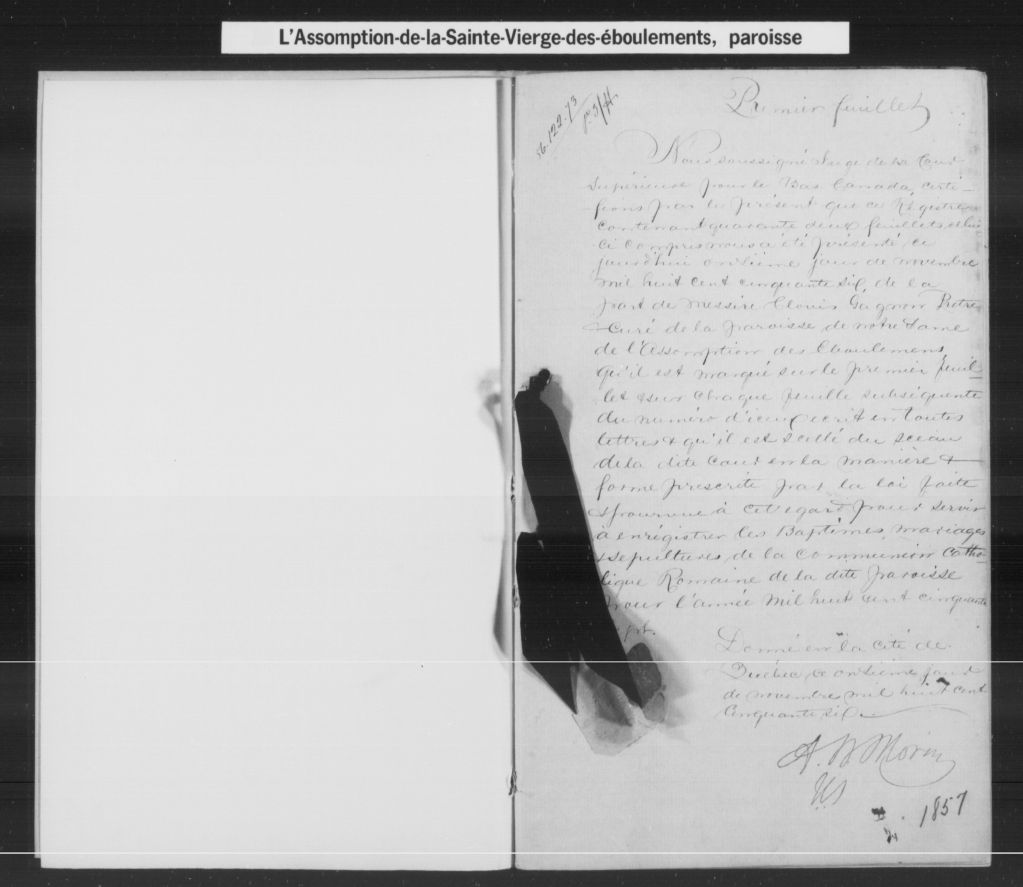 L'Assomption-de-la-Sainte-Vierge-des-éboulements, paroisse
Premier feuillet
Nous soussigné Juge de la Cour
Supérieure pour le Bas Canada, certi-
-fions par le présent que ce Régistre
contenant quarante deux feuillets celui
ci compris nous a été présenté, ce
jourd'hui onsieme jour de novembre
mil huit cent cinquante six, de la
part de Messire Clovis Gagnon Prêtre
& curé de la paroisse de notre Dame
de l'Assomption des Eboulemens,
qu'il est marqué sur le premier feuil-
let & sur chaque feuille subséquente
du numéro d'iceux écrit en toutes
lettres & qu'il est scellé du sceau
de la dite cour en la manière &
forme prescrite par la loi faite
& pourvue à cet egard pour servir
à enrégistrer les Baptêmes, mariages
& sepultures de la communion catho-
lique Romaine de la dite paroisse
pour l'année mil huit cent cinquante
sept.
Donné en la cité de
Québec, ce onsieme jour
de novembre mil huit cent
cinquante six.
A. N. Morin
1857